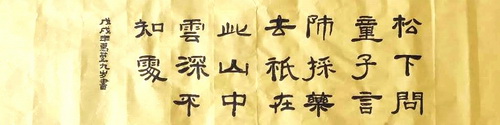 松下問
童子言
師採藥
去祇在
此山中
雲深不
知處
戊戌 九岁書